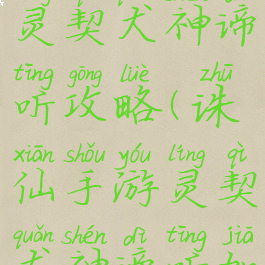 灵契犬神谛
tīng gōng lüè zhū
听攻略(诛
xiān shǒu yóu líng qì
仙手游灵契
quǎn shén dì tīng jiā